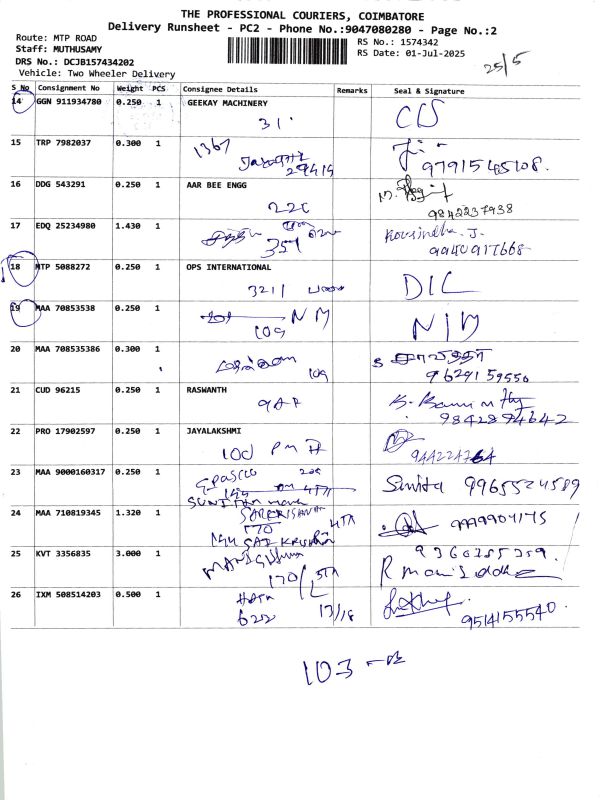 THE PROFESSIONAL COURIERS, COIMBATORE
Delivery Runsheet - PC2 - Phone No.:9047080280 - Page No.:2
Route: MTP ROAD
RS No.: 1574342
Staff: MUTHUSAMY
RS Date: 01-Jul-2025
25/5
DRS No.: DCJB157434202
Vehicle: Two Wheeler Delivery
S No Consignment No Weight PCS Consignee Details Remarks Seal & Signature
14 GGN 911934780 0.250 1 GEEKAY MACHINERY
31
15 TRP 7982037 0.300 1 1367
29414 9791545108.
16 DDG 543291 0.250 1 AAR BEE ENGG
220 9842237938
17 EDQ 25234980 1.430 1
351 Kousindha. J.
9940917668
18 MTP 5088272 0.250 1 OPS INTERNATIONAL
3211 DIL
19 MAA 70853538 0.250 1 NM NIM
109
20 MAA 708535386 0.300 1
109 9629159550
21 CUD 96215 0.250 1 RASWANTH
9842894642
22 PRO 17902597 0.250 1 JAYALAKSHMI
100 PM H 944224764
23 MAA 9000160317 0.250 1 209
Sunita 9965524589
24 MAA 710819345 1.320 1 SAIKRISHNA
170 4TH 9999904175
144 SAI KRISHNA
25 KVT 3356835 3.000 1 9360355359.
170/ 5TH R manisiddhe
26 IXM 508514203 0.500 1
622 17/18 9514155540.
103 - B